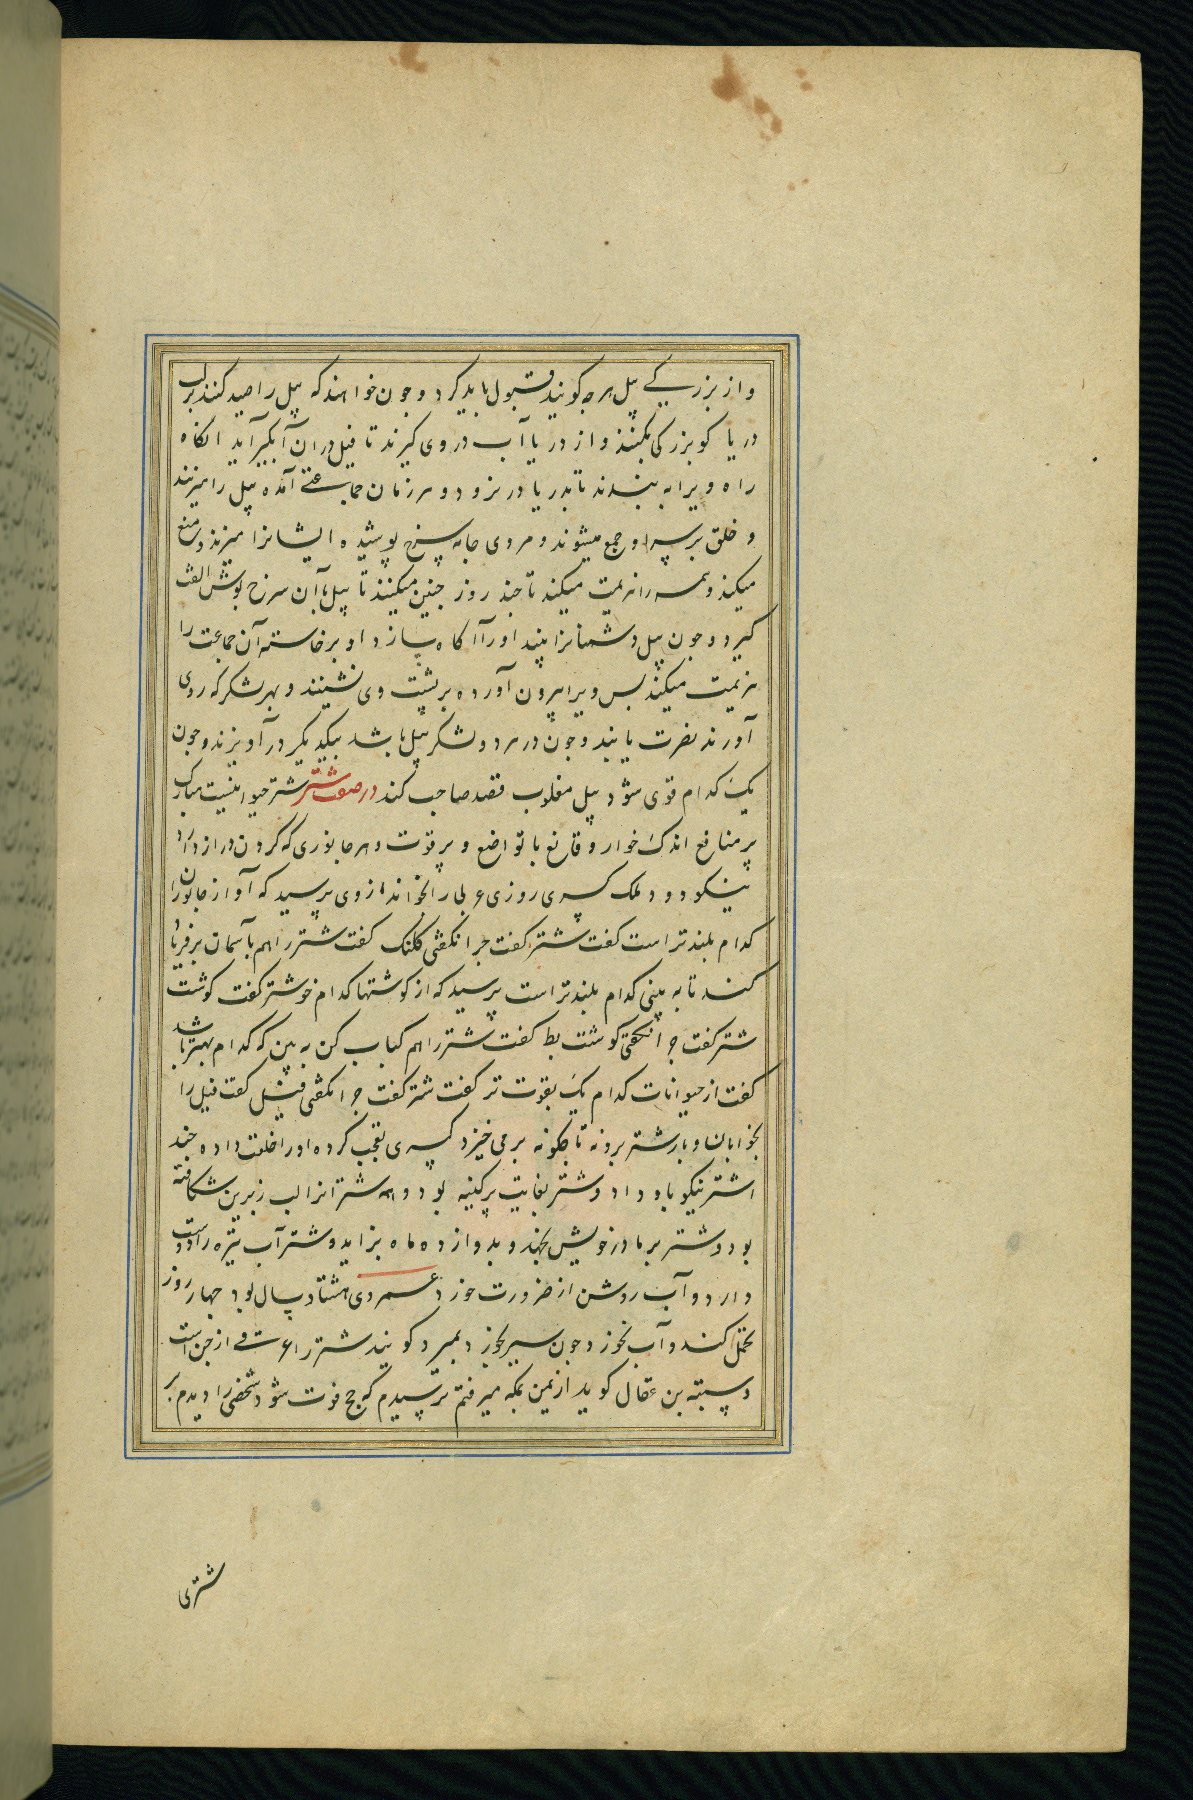 و از بزرکی پیل هرجه کویند قبول باید کرد و جون خواهند که پیل را صید کنند بر لب
دریا کو بزرکی بکنند و از دریا آب در وی کیرند تا فیل در ان آبکیر آید انکاه
راه ویرا به بندند تا بدریا در نرود و هر زمان جماعتی آمده پیل را میزنند
و خلق بر سر او جمع میشوند و مردی جامه سرخ پوشیده ایشانرا میزند و منع
میکند و همه را هزیمت میکند تا جند روز جنین میکنند تا پیل با آن سرخ پوش الفت
کیرد و جون پیل دشمنانرا بیند اورا آکاه سازد او برخاسته آن جماعت را
هزیمت میکند پس ویرا بیرون آورده بر پشت وی نشینند و بهر لشکر که روی
آورند نصرت یابند و جون در هر دو لشکر پیل باشد بیکدیکر در آویزند و جون
یک کدام قوی شود پیل مغلوب قصد صاحب کند در صفت شتر شتر حیوانیست مبارک
پر منافع اندک خوار و قانع با تواضع و پر قوت و هر جانوری که کردن دراز دارد
نیکو دود ملک کسری روزی عربی را بخواند از وی پرسید که آواز جانوران
کدام بلندتر است کفت شتر کفت جرا نکفتی کلنک کفت شتر را هم بآسمان بر فریاد
کند تا به بینی کدام بلندتر است پرسید که از کوشتها کدام خوشتر کفت کوشت
شتر کفت جرا نکفتی کوشت بط کفت شتر را هم کباب کن به بین که کدام بهتر باشد
کفت از حیوانات کدام یک بقوت تر کفت شتر کفت جرا نکفتی فیل کفت فیل را
بخوابان و بار شتر برو نه تا جکونه بر می خیزد کسری تعجب کرده اورا خلعت داده جند
اشتر نیکو باو داد و شتر بغایت پر کینه بود و همه شترانرا لب زبرین شکافته
بود و شتر بر مادر خویش نجهد و بدوازده ماه بزاید و شتر آب تیره را دوست
دارد و آب روشن از ضرورت خورد عمر وی هشتاد سال بود جهار روز
تحمل کند و آب نخورد جون سیر بخورد بمیرد کویند شتر را عرقی از جن است
بن عقال کوید از یمن بمکه میرفتم ترسیدم که حج فوت شود شخصی را دیدم بر
شتری